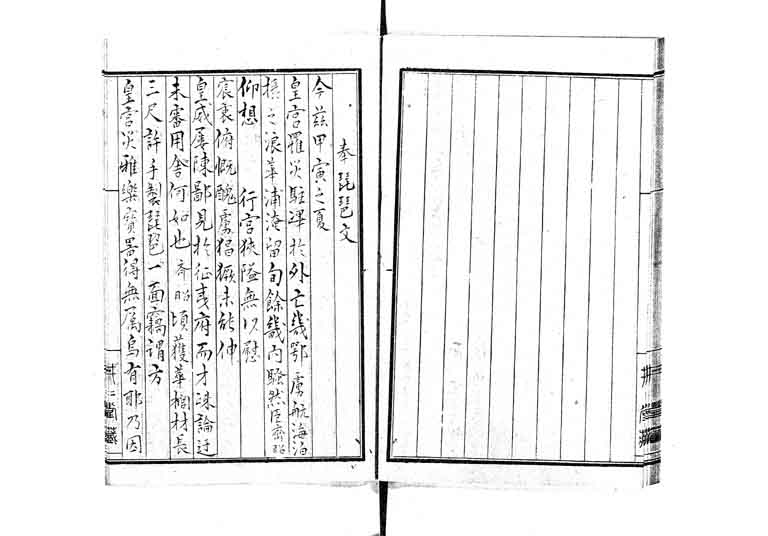 奉琵琶文
今茲甲寅之夏
皇宮罹災駐蹕於外亡幾鄂虜航海泊
摂之浪華浦淹留旬餘畿内騒然臣齊昭
仰想 行宮狹隘無以慰
宸衷俯慨醜虜猖獗未能伸
皇威屡陳鄙見於征夷府而才疎論迂
未審用舎何如也齊昭頃獲華櫚材長
三尺許手製琵琶一面竊謂方
皇宮災雅樂寳器得無属烏有耶乃因